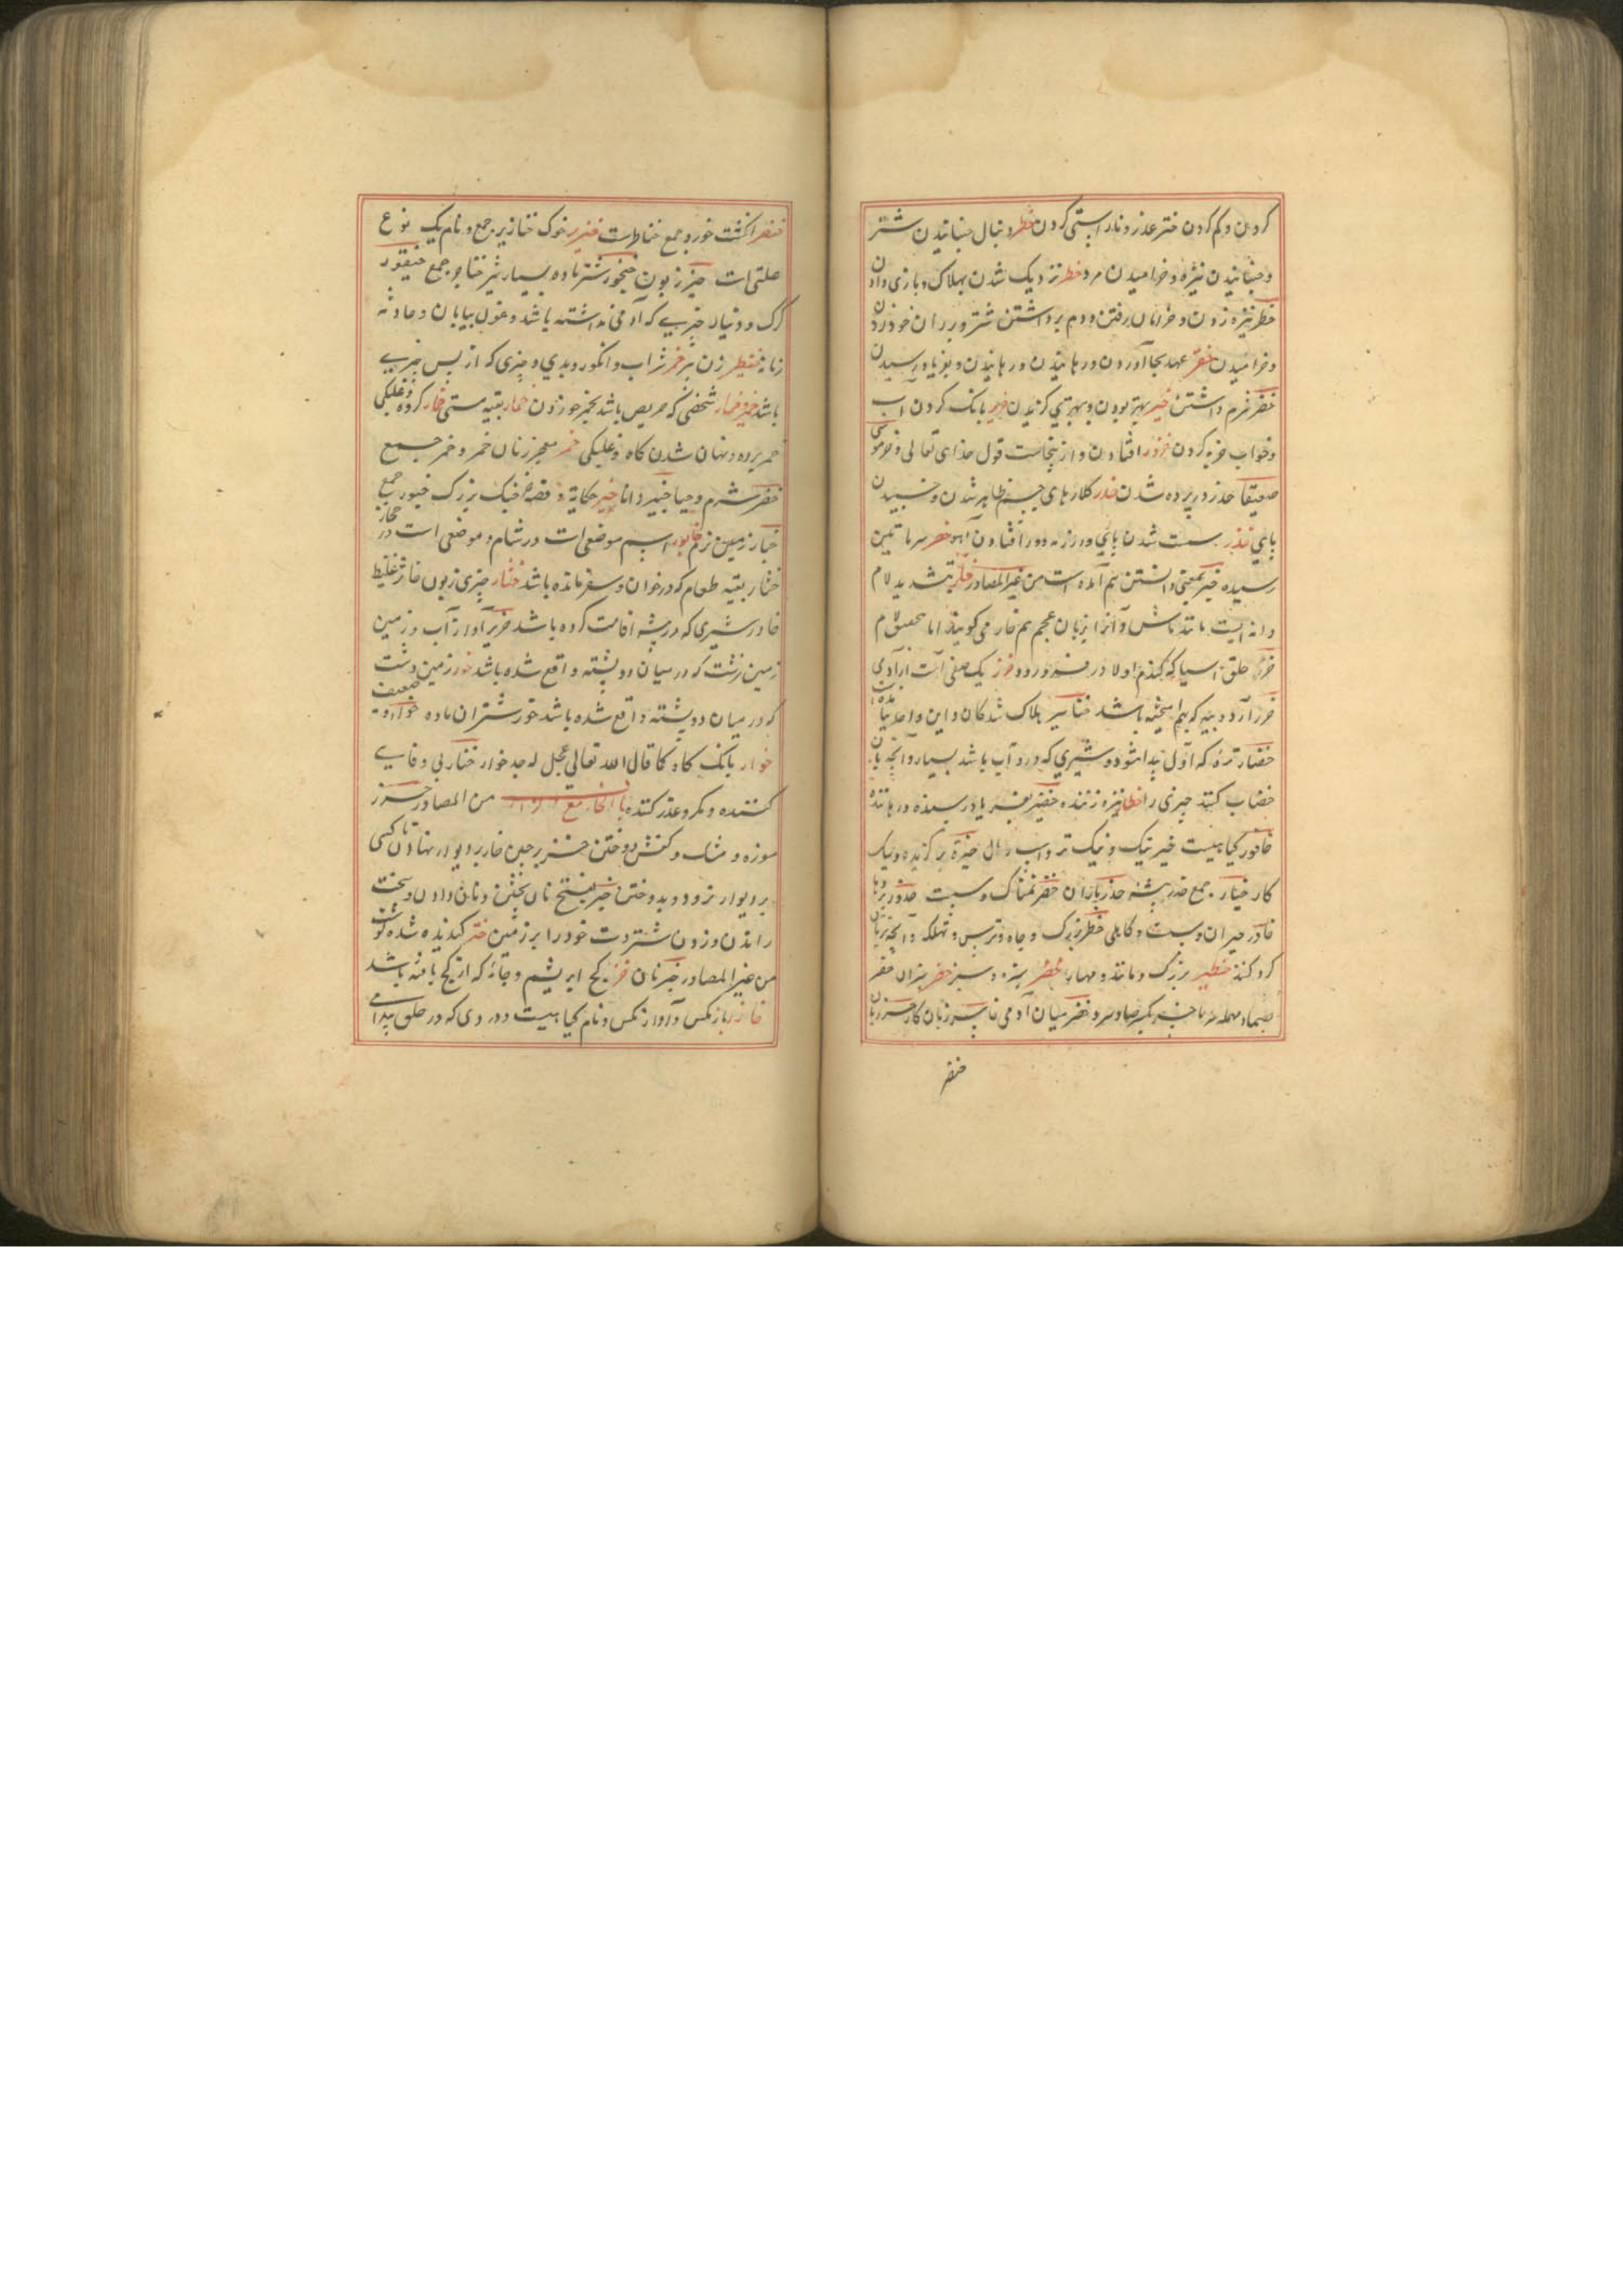 کردن و کم کردن ختر عذر و ناراستی کردن خطر دنبال جنبانیدن شتر
و جنبانیدن نیزه و خرامیدن مرد خطر نزدیک شدن بهلاک و بازی دادن
خطر نیزه زدن و خرامان رفتن و دم برداشتن شتر و بر ران خود زدن
و خرامیدن خفر عهد بجا آوردن و رهانیدن و رهانیدن و بفریاد رسیدن
خفر شرم داشتن خیر بهتر بودن و بهتری کزیدن خریر بانک کردن آب
و خواب خره کردن خرور افتادن و ازینجاست قول خدای تعالی و خر موسی
صعقا خدر در پرده شدن خدر کلاربای جسم ظاهر شدن و خسبیدن
پای خدر سست شدن پای و در زه دور افتادن آهو خصر سرما بمن
رسیده خبر بمعنی دانستن هم آمده است من غیر المصادر خلر بتشدید لام
دانه ایست مانند ماش و آنرا بزبان عجم هم خلر می کویند اما بتخفیف لام
خر حلق آسیا که کندم اولا در فرو رود خزر یک صنفی است از آدمی
خزر آرد و پیه که بهم آمیخته باشد خناسیر هلاک شدکان و این واحد نیامده است
خضار تره که اول پیدا شود و شیری که درو آب باشد بسیار و آنچه بآن
خضاب کنند چیزی را خطار نیزه زننده خفیر بفریاد رسنده و رهاننده
خافور کیاهیست خیر نیک و نیک تر و اسب و مال خیرة برکزیده و نیک
کار خیار جمع خدر بیشه خدر باران خضر نمناک و سست خدور پردها
خادر حیران و سست و کاهلی خطر بزرک و جاه و ترس و تهلکه و آنچه بآن
کرو کنند خطیر بزرک و مانند و مهار خضر سبزه و سبز خضر بزان خنصر
بضم صاد مهمله خصر میان آدمی خاسر زیان کار خسر زیان
خنصر
خنصر انکشت خورد و جمع خناصر است خنزیر خوک خنازیر جمع و نام یک نوع
علتی است خیزر زبون خنجور شتر ماده بسیار شیر خناجر جمع خیتعور
کرک و دنیا و چیزی که آدمی نداشته باشد و غول بیابان و حادثه
زمانه خنیطر زن پیر خمر شراب و انکور و بدی و چیزی که از پس چیزی
باشد خمر و خمار شخصی که حریص باشد بخمر خوردن خمار بقیه مستی خمار کروه و غلبکی
خمر پرده و نهان شدن کاه و غلبکی خمر معجر زنان خمر و خمر جمع
خفر شرم و حیا خبیر دانا خبر حکایة و قصه خبر خیک بزرک خبور جمع
خبار زمین نرم خابور اسم موضعی است در شام و موضعی است در حجاز
خثار بقیه طعام که در خوان و سفره مانده باشد خثار چیزی زبون خاثر غلیظ
خادر شیری که در بیشه اقامت کرده باشد خریر آواز آب و زمین
زمین زشت که در میان دو پشته واقع شده باشد خور زمین دشت
که در میان دو پشته واقع شده باشد خور شتران ماده خوار ضعیف
خوار بانک کاو کما قال الله تعالی عجل له جسد خوار ختار بی وفایی
کننده و مکر و عذر کننده باب الخاء مع الزاء من المصادر خرز
موزه و مشک و کفش دوختن خز بر چین خار بر دیوار نهادن تا کسی
بر دیوار نرود و بدوختن خبز بفتح نان پختن و نان دادن و سخت
راندن و زدن شتر دست خود را بر زمین خنز کندیده شدن کوشت
من غیر المصادر خبز نان خز کج ابریشم و جامه که از کج بافته باشد
خازباز مکس و آواز مکس و نام کیاهیست و دردی که در حلق پیدا می